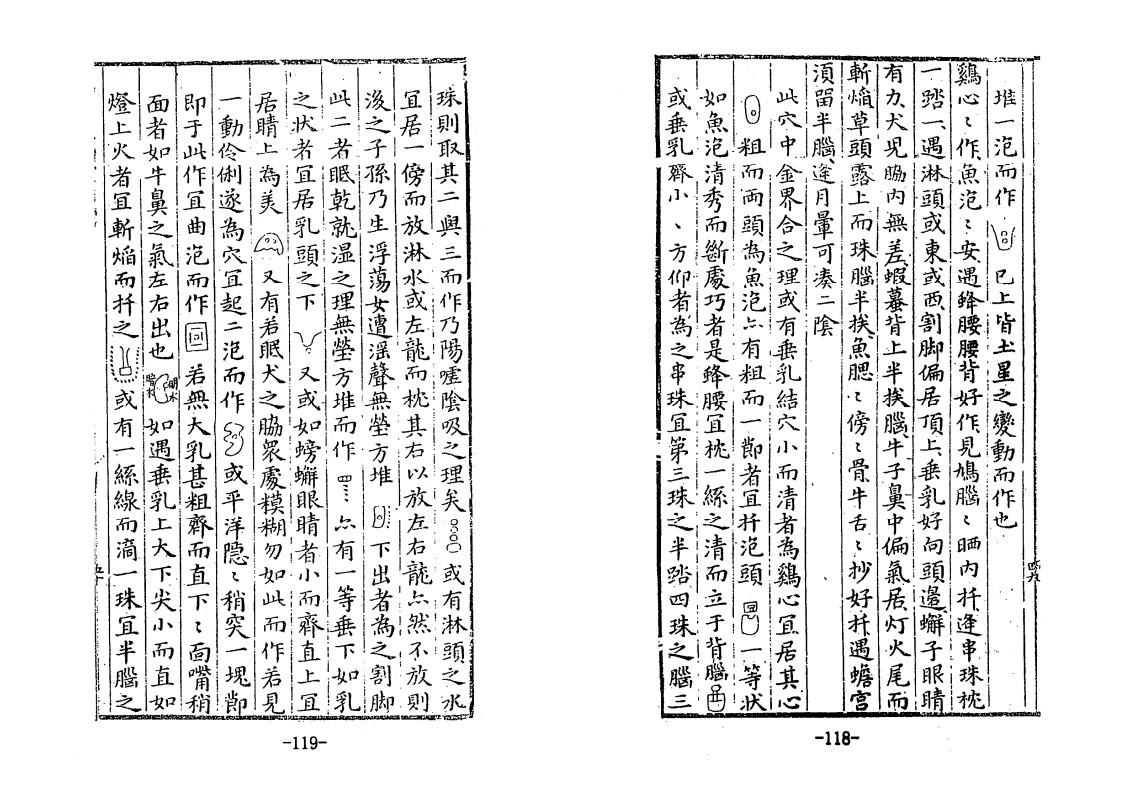 堆一泡而作 已上皆土星之變動而作也
鷄心〻作魚泡〻安遇蜂腰腰背好作見鳩腦〻晒内扦逢串珠枕
一踏一遇淋頭或東或西割脚偏居頂上垂乳好向頭邉蠏子眼睛
有力犬児脇内無差蝦蟇背上半挨腦牛子鼻中偏氣居灯火尾而
斬焔草頭露上而珠腦半挨魚腮〻傍〻骨牛舌〻抄好扦遇蟾宫
須留半腦途月暈可湊二陰
此穴中金界合之理或有垂乳結穴小而清者為鷄心冝居其心
粗而両頭為魚泡亦有粗而一節者冝扦泡頭 一等状
如魚泡清秀而斷處巧者是蜂腰冝枕一絲之清而立于背腦
或垂乳齊小、方仰者為之串珠冝第三珠之半踏四珠之腦三
四九
-118-
珠則取其二與三而作乃陽嘘陰吸之理矣 或有淋頭之水
冝居一傍而放淋水或左龍而枕其右以放左右龍亦然不放則
後之子孫乃生浮蕩女遭滛聲無塋方堆 下出者為之割脚
此二者眠乾就湿之理無塋方堆而作 亦有一等垂下如乳
之状者冝居乳頭之下 又或如螃蠏眼睛者小而齊直上冝
居睛上為美 又有若眠犬之脇衆處糢糊勿如此而作若見
一動伶俐遂為穴冝起二泡而作 或平洋隠〻稍突一塊節
即于此作冝曲泡而作 若無大乳甚粗齊而直下〻面嘴稍
面者如牛鼻之氣左右出也 如遇垂乳上大下尖小而直如
燈上火者冝斬焔而扦之 或有一絲線而滴一珠冝半腦之
-119-